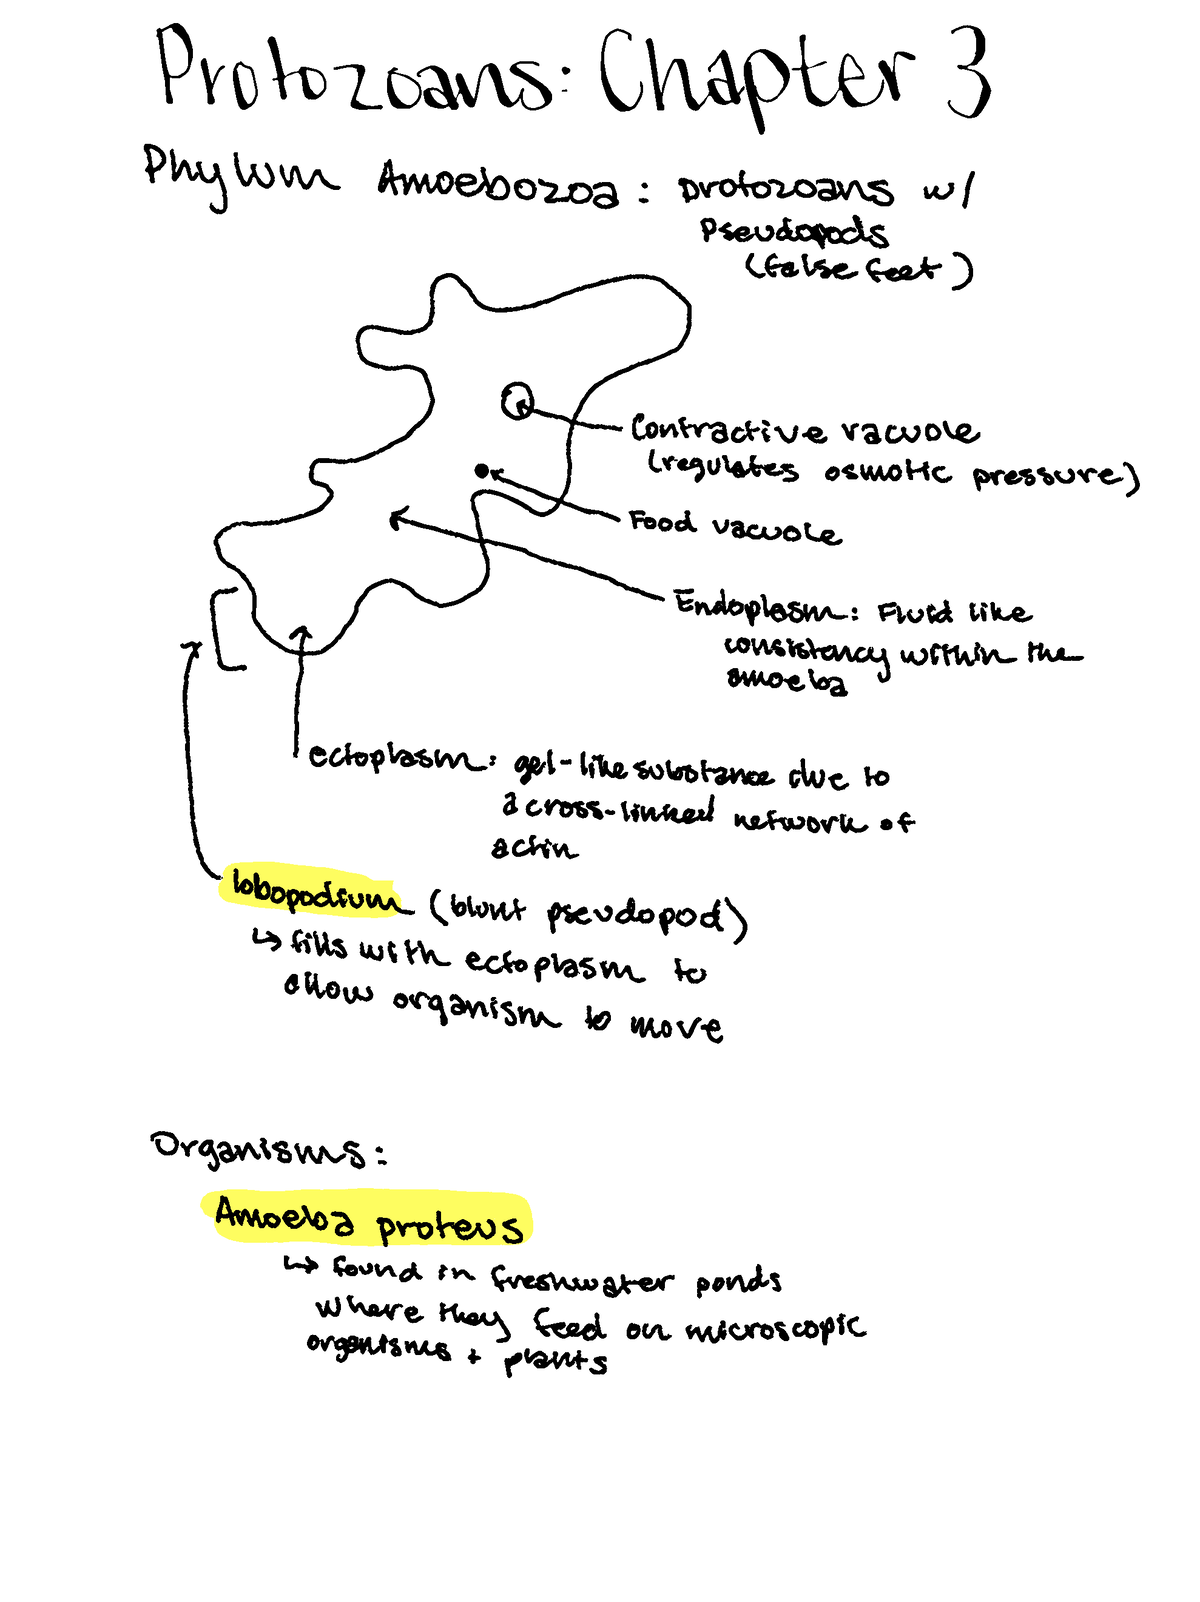 Protozoans: Chapter 3
Phylum Amoebozoa: protozoans w/
pseudopods
(false feet)
Contractive vacuole
(regulates osmotic pressure)
Food vacuole
Endoplasm: Fluid like
consistency within the
amoeba
ectoplasm: gel-like substance due to
a cross-linked network of
actin
lobopodium (blunt pseudopod)
↳ fills with ectoplasm to
allow organism to move
Organisms:
Amoeba proteus
↳ found in freshwater ponds
where they feed on microscopic
organisms + plants